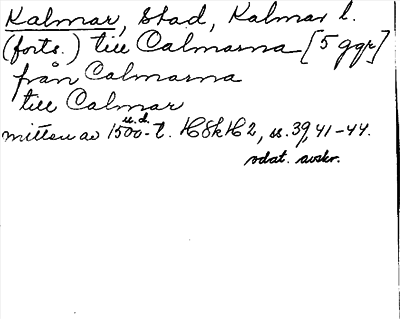 Kalmar, stad, Kalmar l.
(forts.) till Calmarna [5 ggr]
från Calmarna
till Calmar
u.d.
mitten av 1500-t. HSkH 2, s. 39, 41-44.
odat. avskr.